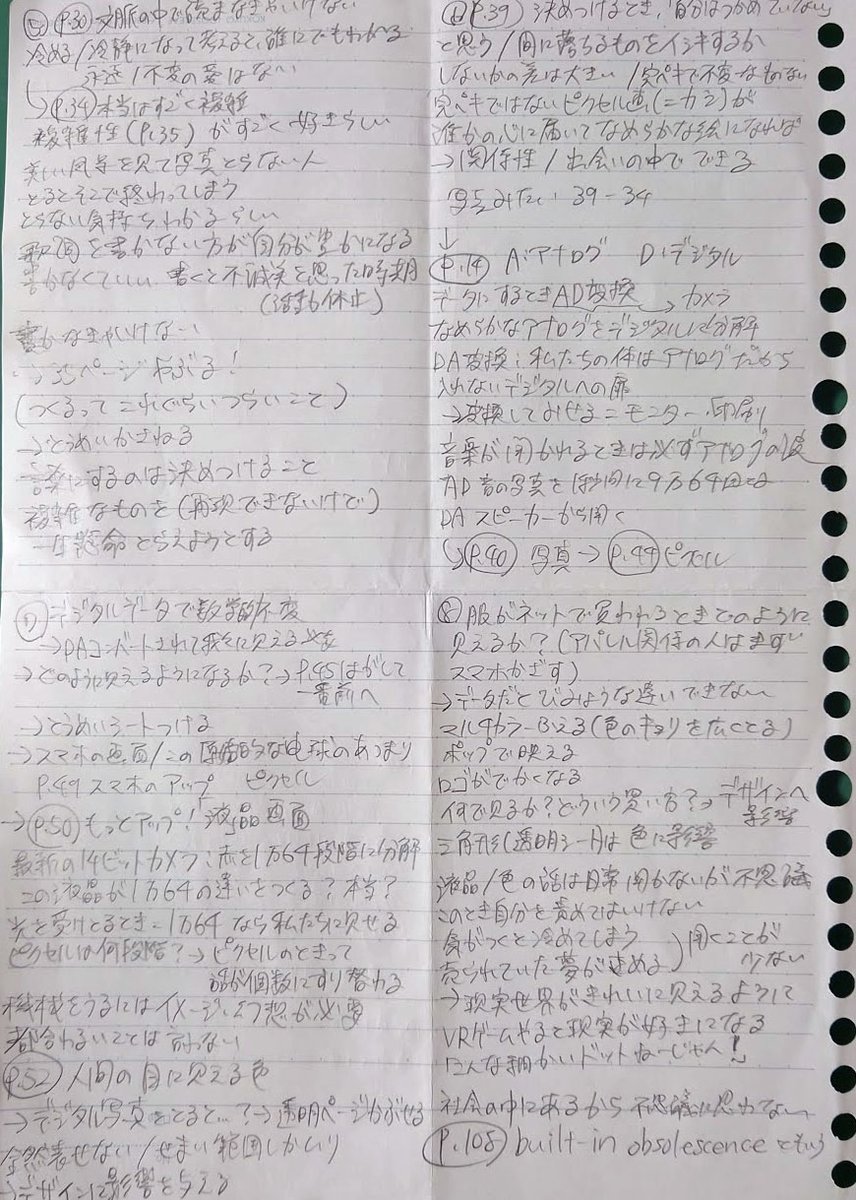 ⑤ P.30 文脈の中で読まなきゃいけない
冷める/冷静になって考えると、誰にでもわかる
永遠/不変の愛はない
→P.34 本当はすごく複雑
複雑性(P.35)がすごく好きらしい
美しい風景を見て写真とらない人
とるとそこで終わってしまう
とらない気持ちわかるらしい
歌詞を書かない方が自分が豊かになる
書かなくていい、書くと不誠実と思った時期
(活動休止)
書かなきゃいけない
→35ページやぶる!
(つくるってこれぐらいつらいこと)
→とうめいかさねる
言葉にするのは決めつけること
複雑なものを(再現できないけど)
一生懸命とらえようとする
⑥ P.39) 決めつけるとき、自分はつかめていない
と思う/間に落ちるものをイシキするか
しないかの差は大きい/完ペキで不変なものない
完ペキではないピクセル画(=カシ)が
誰かの心に届いてなめらかな絵になれば
→関係性/出会いの中でできる
写真みたい 39-34
↓
P.14 A:アナログ D:デジタル
データにするときAD変換→カメラ
なめらかなアナログをデジタルに分解
DA変換:私たちの体はアナログだから
入れないデジタルへの扉
→変換してみせる=モニター・印刷
音楽が聞かれるときは必ずアナログの波
AD 音の写真を1秒間に9万6千回とる
DA スピーカーから聞く
→P.40 写真→P.44 ピクセル
⑦ デジタルデータで数学的不変
→DAコンバートされて我々に見える
→どのように見えるようになるか?→P.45はがして
一番前へ
→とうめいシートつける
→スマホの画面/この原始的な電球のあつまり
P.49 スマホのアップ ピクセル
→P.50 もっとアップ!液晶画面
最新の14ビットカメラ:赤を1万64段階に分解
この液晶が1万64の違いをつくる?本当?
光を受けとるとき=1万64なら私たちに見せる
ピクセルは何段階?→ピクセルのときって
話が個数にすり替わる
機械をうるにはイメージ、幻想が必要
都合わるいことは言わない
P.52 人間の目に見える色
→デジタル写真をとると…?→透明ページかぶせる
全然表せない/せまい範囲しかムリ
→デザインに影響を与える
⑧ 服がネットで買われるときどのように
見えるか?(アパレル関係の人はまず
スマホかざす)
→データだとびみょうな違いできない
マルチカラーふえる(色のキョリを広くとる)
ポップで映える
ロゴがでかくなる
何で見るか?どういう買い方?→デザインへ
影響
三角形(透明シート)は色に影響
液晶/色の話は日常聞かないが不思議
このとき自分を責めてはいけない
気がつくと冷めてしまう
売られていた夢が冷める
聞くことが
少ない
→現実世界がきれいに見えるように
VRゲームやると現実が好きになる
こんな細かいドットねーじゃん!
社会の中にあるから不思議に思わない
P.108 built-in obsolescence ともいう